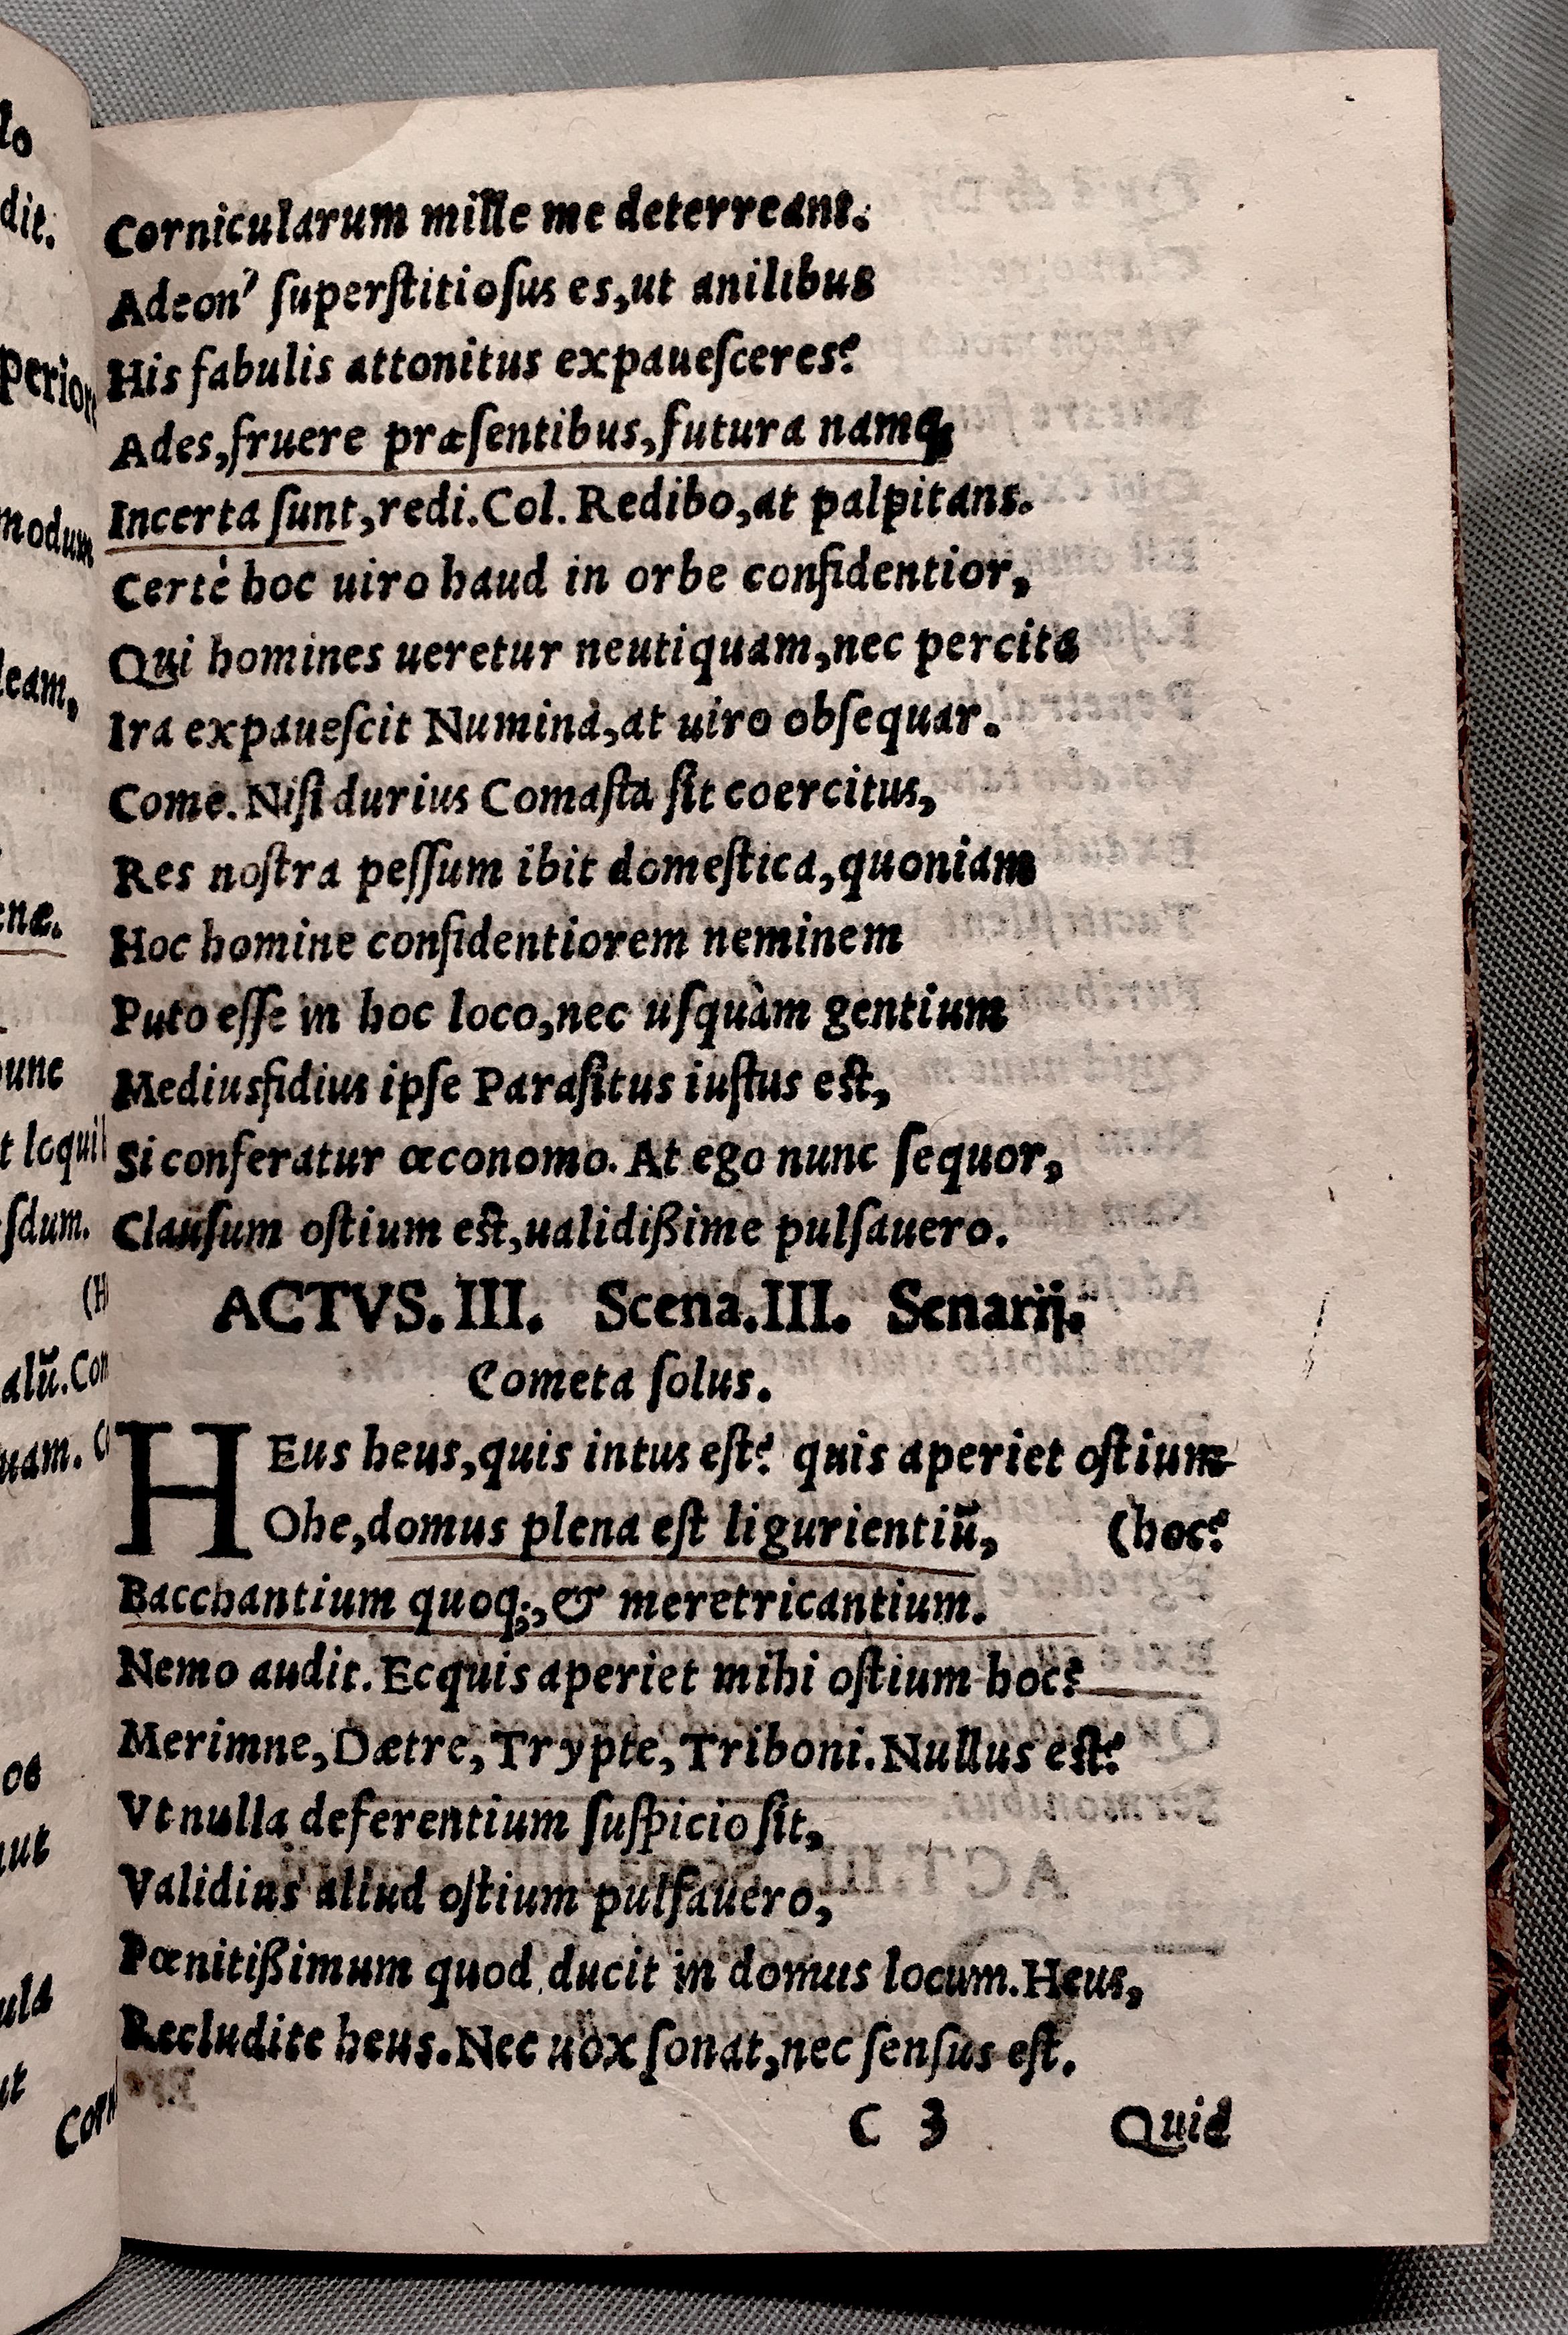 Cornicularum mille me deterreant.
Adeon' ſuperſtitioſus es,ut anilibus
His fabulis attonitus expaueſceres?
Ades,fruere præſentibus,futura namq;
Incerta ſunt,redi.Col.Redibo,at palpitans.
Certè hoc uiro haud in orbe confidentior,
Qui homines ueretur neutiquam,nec percita
Ira expaueſcit Numina,at uiro obſequar.
Come.Niſi durius Comaſta ſit coercitus,
Res noſtra peſſum ibit domeſtica,quoniam
Hoc homine confidentiorem neminem
Puto eſſe in hoc loco,nec uſquàm gentium
Mediusfidius ipſe Paraſitus iuſtus eſt,
Si conferatur œconomo.At ego nunc ſequor,
Clauſum oſtium eſt,ualidißime pulſauero.
ACTVS.III. Scena.III. Senarij.
Cometa ſolus.
HEus heus,quis intus eſt? quis aperiet oſtium
Ohe,domus plena eſt ligurientiũ, (hoc?
Bacchantium quoq;,& meretricantium.
Nemo audit.Ecquis aperiet mihi oſtium hoc?
Merimne,Dætre,Trypte,Triboni.Nullus eſt?
Vt nulla deferentium ſuſpicio ſit,
Validius aliud oſtium pulſauero,
Pœnitißimum quod ducit in domus locum.Heus,
Recludite heus.Nec uox ſonat,nec ſenſus eſt.
C 3 Quid